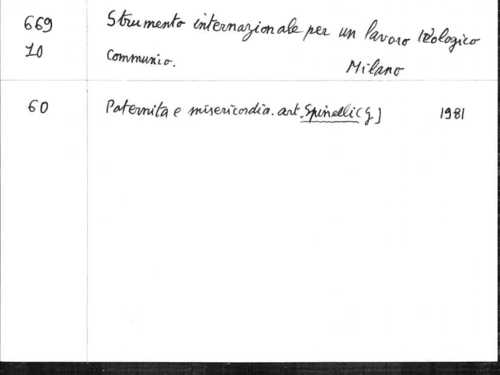 669 Strumento internazionale per un lavoro teologico
10 Communio. Milano
60 Paternita e misericordia. art. Spinelli (g) 1981